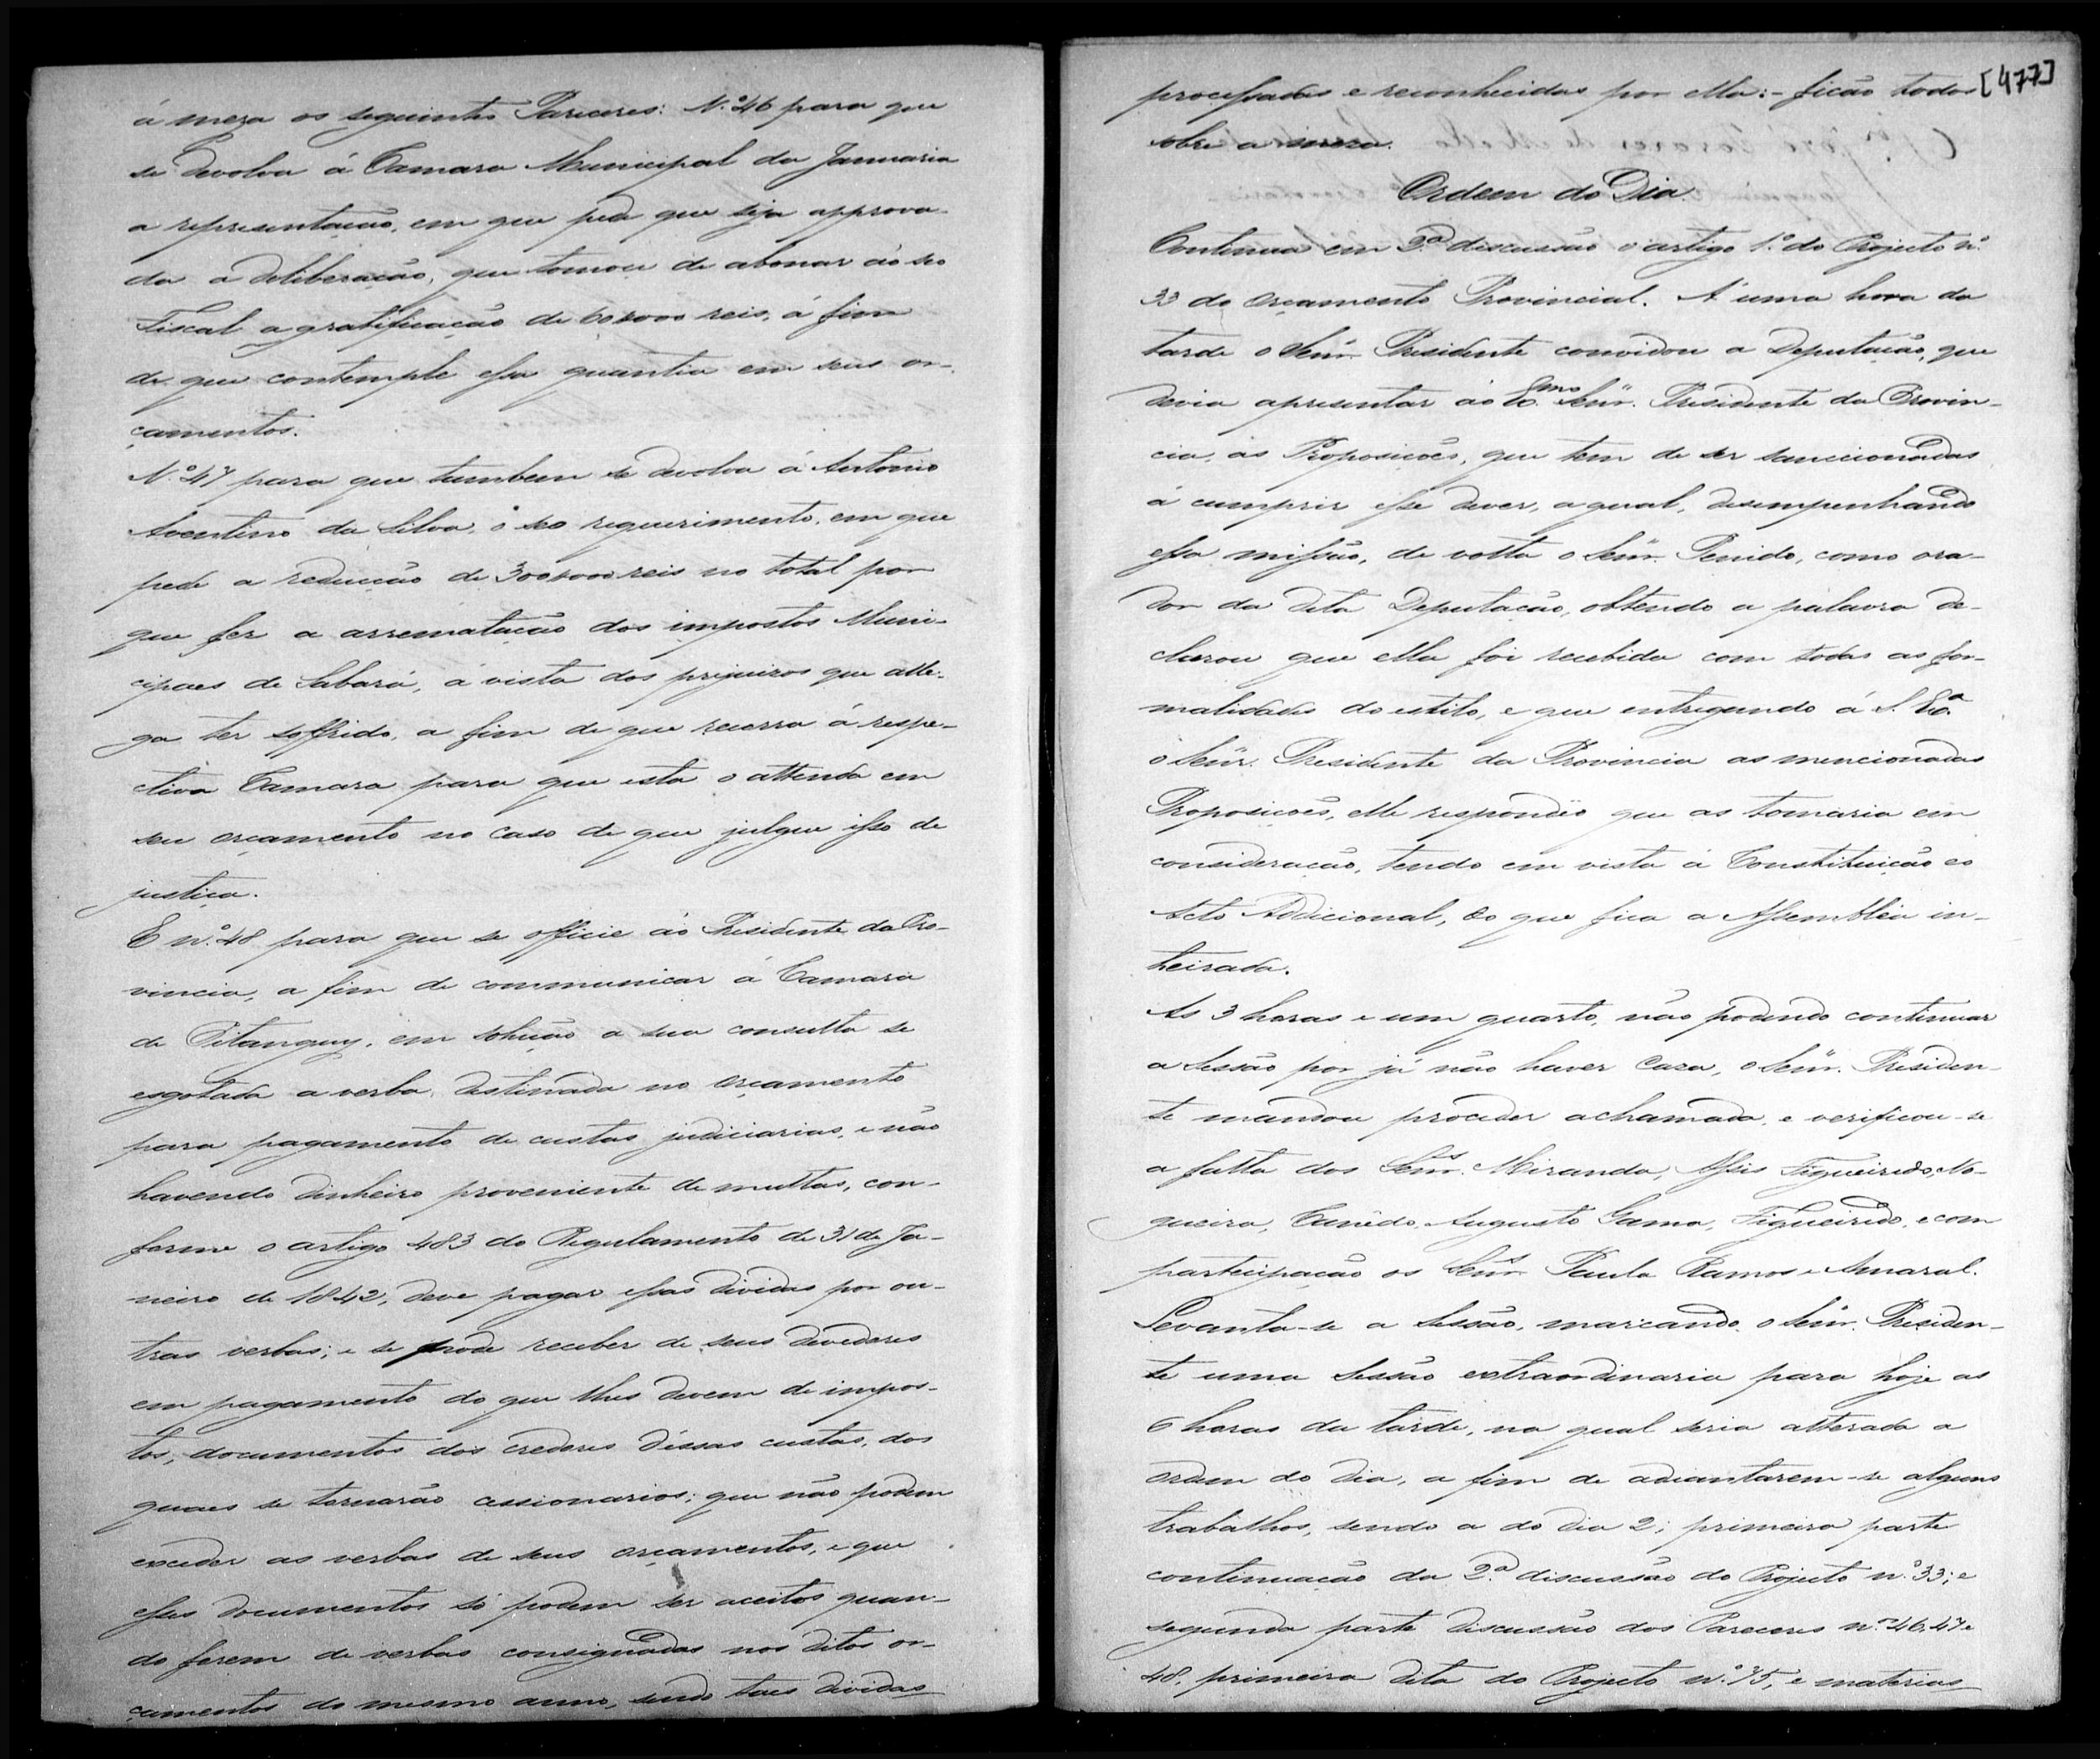 á meza os seguintes Pareceres: N.º 46 para que
se devolva á Camara Municipal da Januaria
a representação, em que pede que seja approva-
da a deliberação, que tomou de abonar áo seo
Fiscal a gratificação de 60$000 reis, á fim
de que contemple essa quantia em seus or-
çamentos.
N.º 47 para que tambem se devolva á Antonio
Aventino da Silva, o seo requerimento, em que
pede a reducção de 300$000 reis no total por
que fez a arrematação dos impostos Muni-
cipaes de Sabará, á vista dos prejuizos que alle-
ga ter soffrido, a fim de que recorra á respe-
ctiva Camara para que esta o attenda em
seu orçamento no caso de que julgue isso de
justiça.
E n.º 48 para que se officie áo Presidente da Pro-
vincia, a fim de communicar á Camara
de Pitanguy, em solução a sua consulta se
esgotada a verba, destinada no orçamento
para pagamento de custas judiciarias, e não
havendo dinheiro proveniente de multas, con-
forme o artigo 483 do Regulamento de 31 de Ja-
neiro de 1842, deve pagar essas dividas por ou-
tras verbas; e se pode receber de seus devedores
em pagamento do que lhes devem de impos-
tos, documentos dos credores dessas custas, dos
quaes se tornarão cessionarios; que não podem
exceder as verbas de seus orçamentos, e que
esses documentos só podem ser aceitos quan-
do forem de verbas consignadas nos ditos or-
çamentos do mesmo anno, sendo taes dividas
[477]
processadas e reconhecidas por ella: - ficão todos
sobre a meza.
Ordem do Dia.
Continua em 2.ª discussão o artigo 1.º do Projecto n.º
33 do Orçamento Provincial. A' uma hora da
tarde o Senr. Presidente convidou a Deputação, que
devia apresentar áo Ex.mo Senr. Presidente da Provin-
cia, as Proposicões, que tem de ser sanccionadas
á cumprir esse dever, a qual, desempenhando
essa missão, de volta o Senr. Penido, como ora-
dor da dita Deputação, obtendo a palavra de-
clarou que ella foi recebida com todas as for-
malidades do estilo, e que entregando á S. Ex.ª
o Senr. Presidente da Provincia as mencionadas
Proposicoes, elle respondeo que as tomaria em
consideração, tendo em vista á Constituição eo
Acto Addicional, do que fica a Assembléa in-
teirada.
As 3 horas e um quarto, não podendo continuar
a Sessão por já não haver Caza, o Senr. Presiden-
te mandou proceder a chamada, e verificou-se
a falta dos Senrs. Miranda, Assis Figueiredo, No-
gueira, Canêdo, Augusto Gama, Figueiredo, e com
participação os Senrs. Paula Ramos e Amaral.
Levanta-se a Sessão, marcando o Senr. Presiden-
te uma Sessão extraordinaria para hoje as
6 horas da tarde, na qual seria alterada a
ordem do dia, a fim de adiantarem-se alguns
trabalhos, sendo a do dia 2; primeira parte
continuação da 2.ª discussão do Projecto n.º 33; e
segunda parte discussão dos Pareceres n.os 46, 47 e
48, primeira dita do Projecto n.º 75, e materias